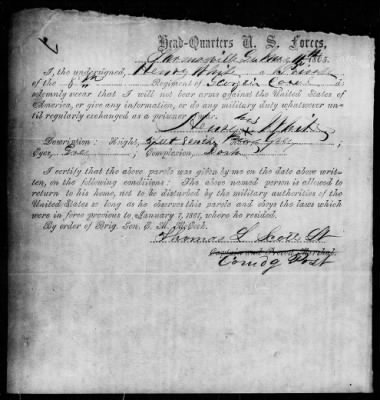 Head-Quarters U. S. Forces,
Thomasville Ga May 1865.
I, the undersigned, Henry White a Private
of the Regiment of Georgia Cavl do
solemnly swear that I will not bear arms against the United States of
America, or give any information, or do any military duty whatsoever un-
til regularly exchanged as a prisoner
Henry his X White
Description: Hight, feet inches Hair, Grey
Eyes, Complexion, Dark
I certify that the above parole was given by me on the date above writ-
ten, on the following conditions: The above named person is allowed to
return to his home, not to be disturbed by the military authorities of the
United States so long as he observes this parole and obeys the laws which
were in force previous to January 1, 1861, where he resided.
By order of Brig. Gen. E. M. McCook.
Thomas L Scott Lt
Captain and Provost Marshal.
Comdg Post